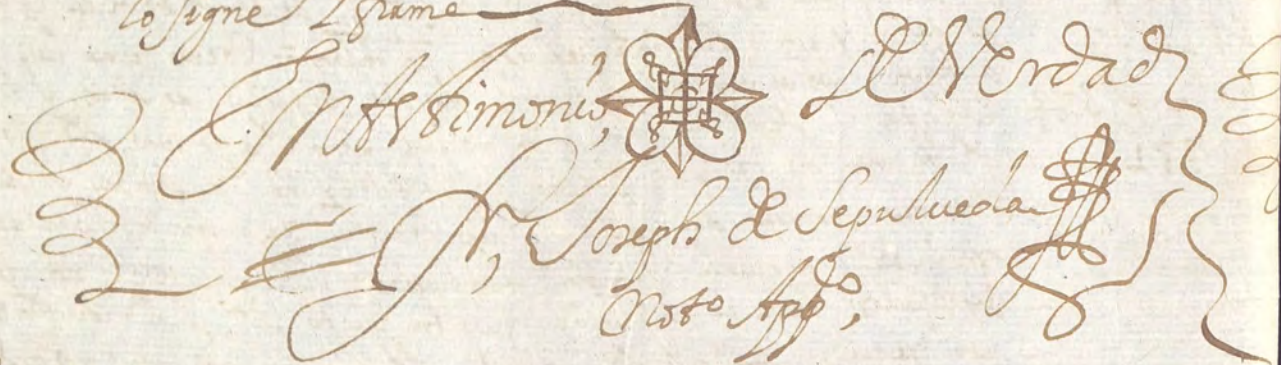 lo signe & firme
En testimonio, de Verdad
Fr, Joseph de Sepulueda
Notº Appº,